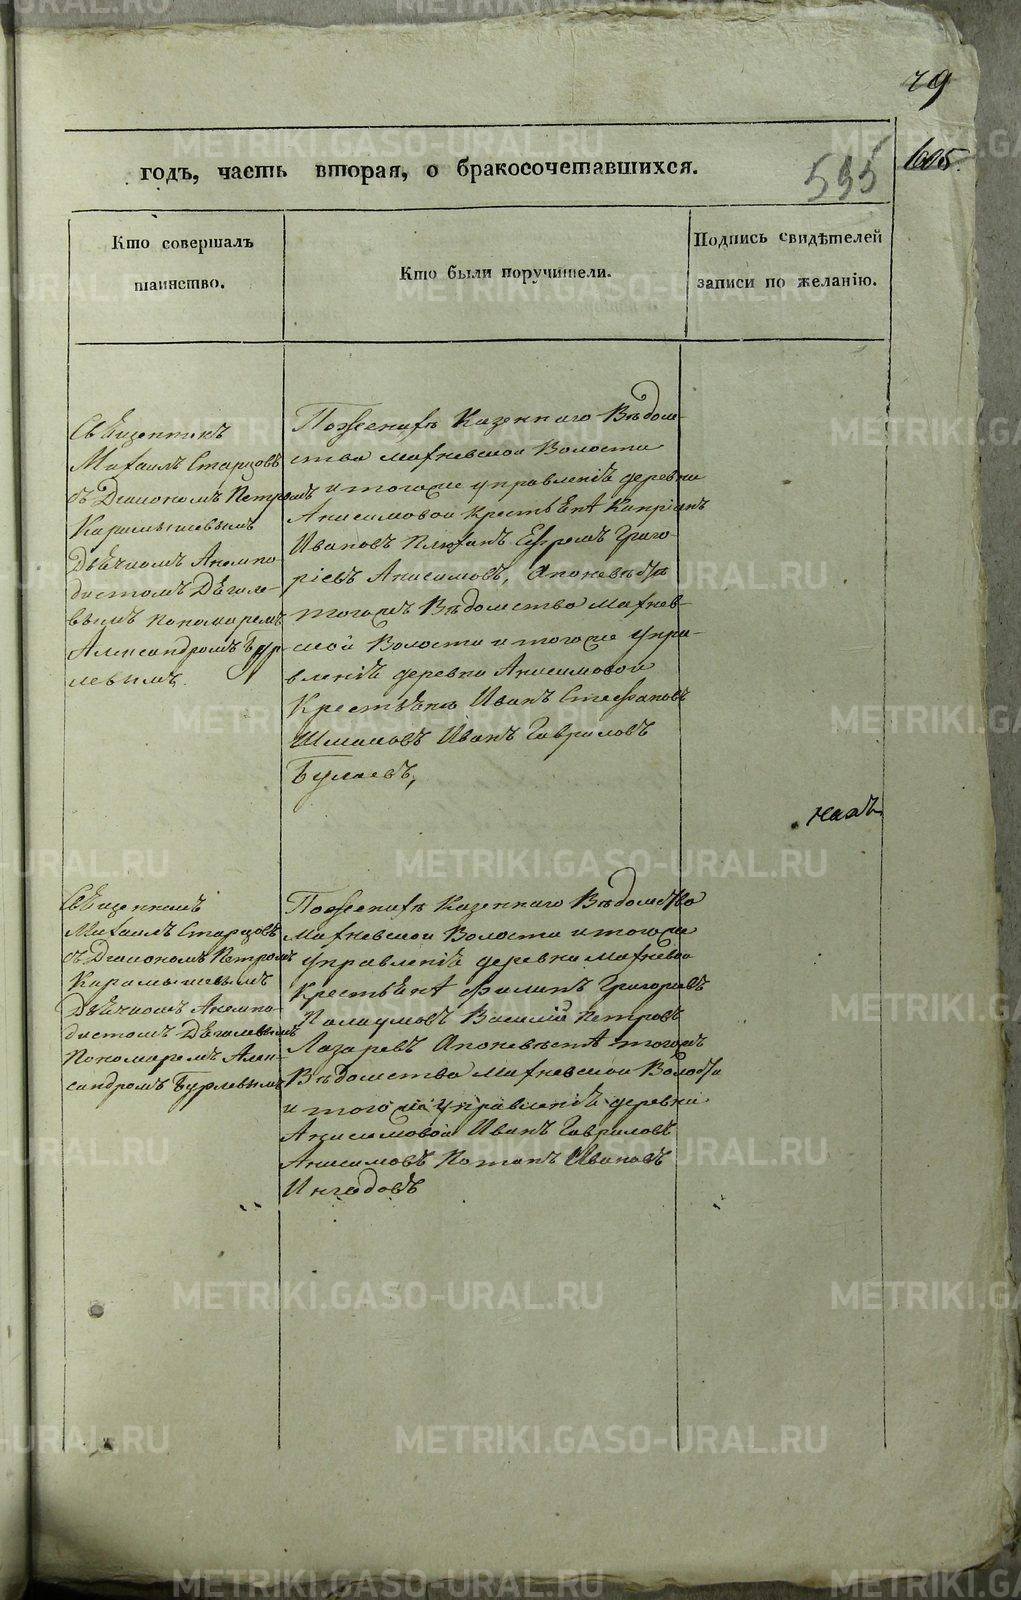 79
годъ, часть вторая, о бракосочетавшихся.
595
1605.
Кто совершалъ
таинство.
Кто были поручители.
Подпись свидѣтелей
записи по желанію.
Священникъ
Михаилъ Старцовъ
съ Дьякономъ Петромъ
Карамышевымъ
Дьячкомъ Анемпо-
дистомъ Дѣгале-
вымъ пономаремъ
Александромъ Бур-
левымъ.
По женихѣ Казеннаго Вѣдом-
ства Махневской Волости
и тогоже управленіѣ деревни
Анисимовой крестьѣне Капріянъ
Ивановъ Ефремъ Григо-
ріевъ Анисимовъ, Апоневѣстѣ
тогожъ Вѣдомства Махнев-
ской Волости и тогоже упра-
вленіѣ деревни Анисимовой
Крестьѣне Иванъ Стефановъ
Шмаковъ Иванъ Гавриловъ
Булаевъ,
Священникъ
Михаилъ Старцовъ
съ Дьякономъ Петромъ
Карамышевымъ
Дьячкомъ Анемпо-
дистомъ Дѣгалевымъ
Пономаремъ Алек-
сандромъ Бурлевымъ
По женихѣ Казеннаго Вѣдомства
Махневской Волости и тогоже
управленіѣ деревни Махневой
Крестьѣне Филипъ Григоревъ
Василій Петровъ
Лазаревъ Апоневѣсте тогожъ
Вѣдомства Махневской Волости
и тогоже управленіѣ деревни
Анисимовой Иванъ Гавриловъ
Анисимовъ Потапъ Ивановъ
METRIKI.GASO-URAL.RU